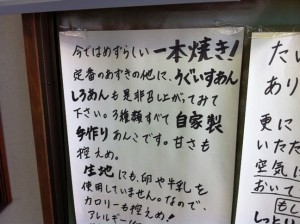 今ではめずらしい一本焼き!
定番のあずきの他に、うぐいすあん
しろあんも是非召し上がってみて
下さい。3種類すべて自家製
手作りあんこです。甘さも
控えめ。
生地にも、卵や牛乳を
使用していません。なので、
カロリーも控えめ!
アレルギー
たい
あり
更に
いただ
空気に
おいて
もし